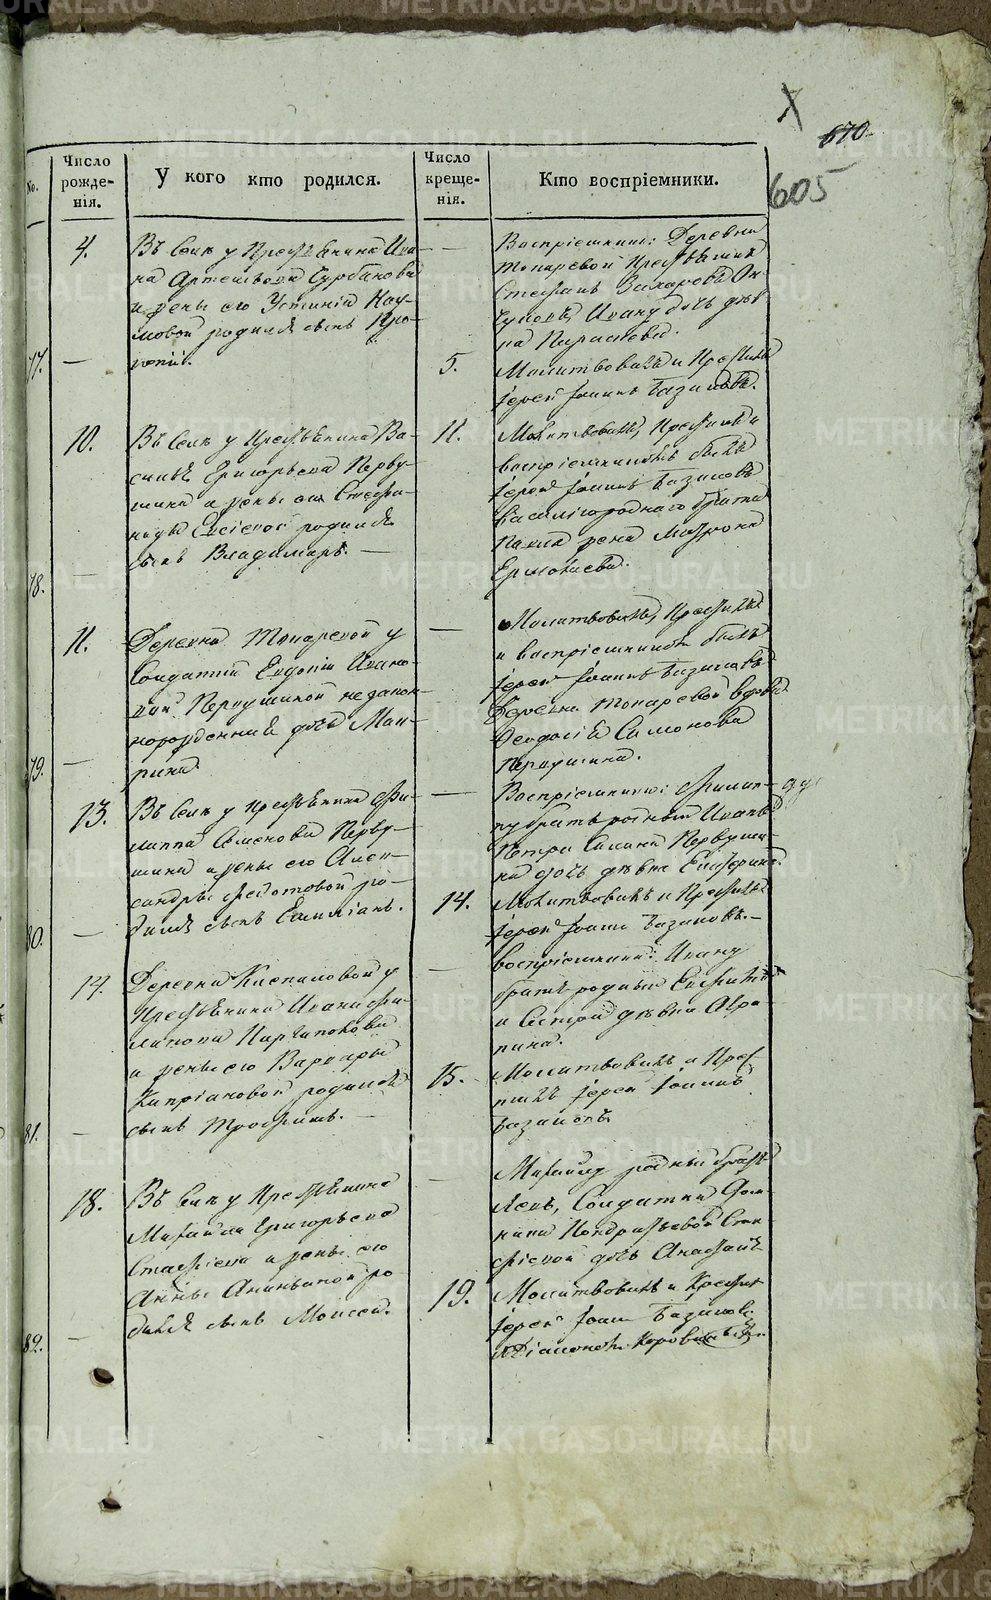 670
605
No.
Число рожде-нія.
У кого кто родился.
Число креще-нія.
Кто воспріемники.
4.
Въ Селѣ у Крестьянина Ива-
на Артемьева Сурбанова
и жены его Устиніи Нау-
мовой родился сынъ Про-
копій.
77.
Воспріемники: Деревни
Токаревой Крестьянинъ
Стефанъ Захаровъ
Ивану дочь дѣв
ка Параскова.
5.
Молитвовалъ и Крестилъ
Іерей Іоаннъ Базиловъ.
10.
Въ Селѣ у Крестьянина Ва-
силья Григорьева Перву-
шина и жены его Стефа-
ниды Елисеевой родился
сынъ Владимиръ.
78.
11.
Молитвовалъ, Крестилъ и
воспріемникомъ былъ
Іерей Іоаннъ Базиловъ
Василія родного брата
Павла жена Матрона
Ермолаева.
11.
Деревни Токаревой у
Солдатки Евдокіи Ивано-
вой Первушиной незакон-
норожденная дочь Мат-
рина.
79.
Молитвовалъ, Крестилъ
и воспріемникомъ былъ
Іерей Іоаннъ Базиловъ
Деревни Токаревой вдова
Феодосія Симонова
Первушина.
13.
Въ Селѣ у Крестьянина Фи-
липпа Семенова Перву-
шина и жены его Алек-
сандры Федотовой ро-
дился сынъ Емиліанъ.
80.
Воспріемники: Филип-
пу братъ родный Иванъ
Петра Силина Первуши-
на дочь дѣвка Екатерина.
14.
Молитвовалъ и Крестилъ
Іерей Іоаннъ Базиловъ.
14.
Деревни Киспиловой у
Крестьянина Ивана Фи-
липова
и жены его Варвары
Кипріановой родился
сынъ Трофимъ.
81.
воспріемники: Ивану
братъ родный Евфимъ
и Сестра дѣвка Агра-
пина.
15.
Молитвовалъ и Крес-
тилъ Іерей Іоаннъ
Базиловъ.
18.
Въ Селѣ у Крестьянина
Михайла Григорьева
Стафіева и жены его
Анны Ананьиной ро-
дился сынъ Моисей.
82.
Михайлу родный братъ
Яковъ, Солдатки Дом-
ники Кондратьевой Ста-
фіевой дочь Анастасія
19.
Молитвовалъ и Крестил
Іерей Іоаннъ Базилов.